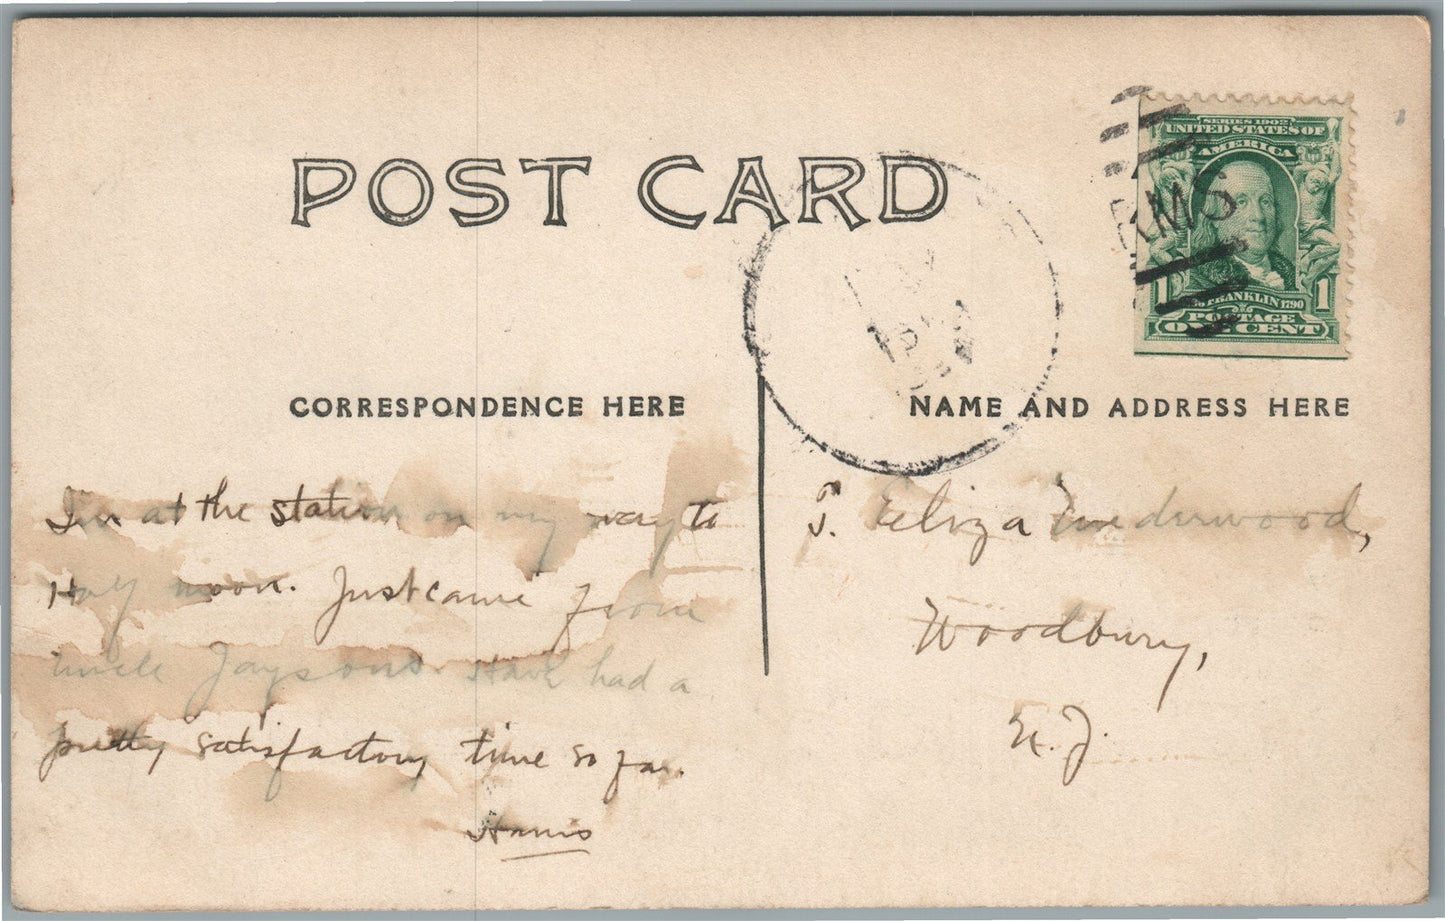 POST CARD
SERIES 1902
UNITED STATES OF
AMERICA
RMS
1 FRANKLIN 1790 1
POSTAGE
ONE CENT
CORRESPONDENCE HERE
NAME AND ADDRESS HERE
I'm at the station on my way to
Half moon. Just came from
uncle Jaysons. Have had a
pretty satisfactory time so far.
Eliza Underwood,
Woodbury,
N. J.